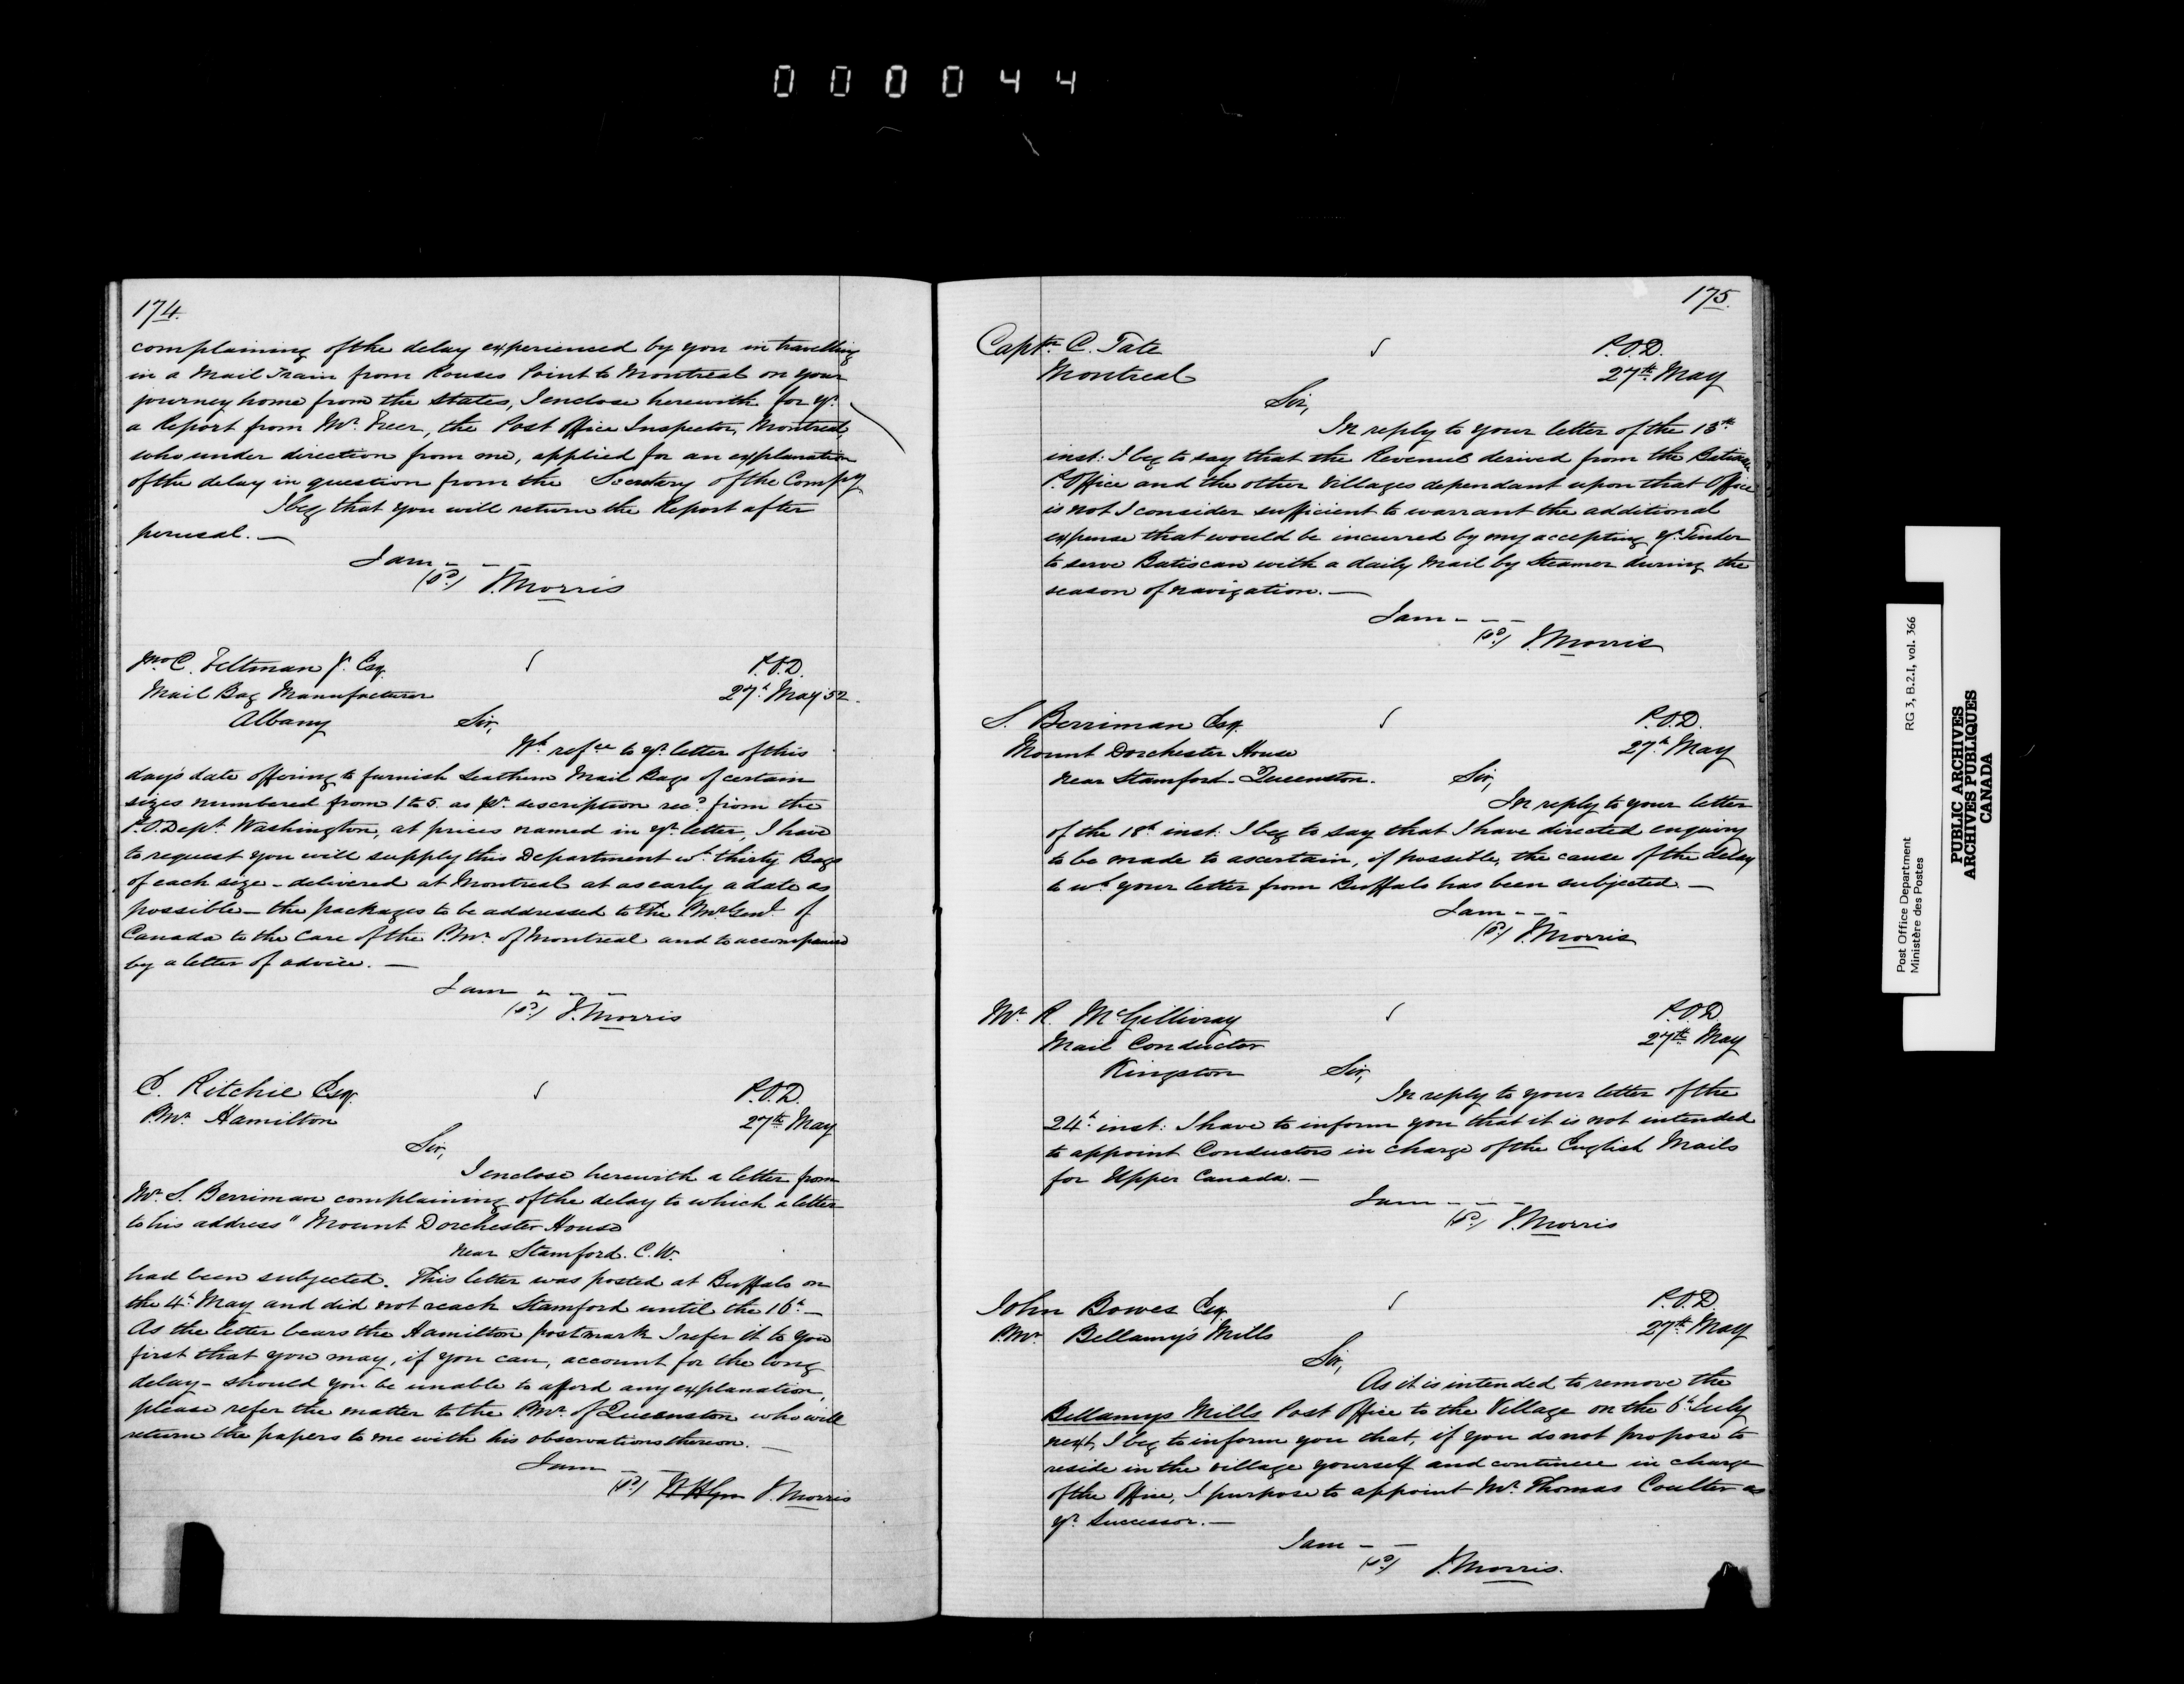 000044
174.
complaining of the delay experienced by you in travelling
in a Mail Train from Rouses Point to Montreal on your
journey home from the States, I enclose herewith for yr.
a Report from Mr. Freer, the Post Office Inspector, Montreal,
who under direction from me, applied for an explanation
of the delay in question from the Secretary of the Compy
I beg that you will return the Report after
perusal. —
I am - - -
(sd.) J. Morris
C. Feltman Jr. Esq.
P.O.D.
Mail Bag Manufacturer
27th. May 52.
Albany
Sir,
Wh. refce to yr. letter of this
day's date offering to furnish Leathern Mail Bags of certain
sizes numbered from 1 to 5 as pr. description recd. from the
P.O. Dept. Washington, at prices named in yr. letter, I have
to request you will supply this Department wh. thirty Bags
of each size - delivered at Montreal at as early a date as
possible — the packages to be addressed to the P.Mr. Genl. of
Canada to the care of the P.Mr. of Montreal and to accompanied
by a letter of advice. —
I am - - -
(sd.) J. Morris
E. Ritchie Esqr.
P.O.D.
P.Mr. Hamilton
27th May
Sir,
I enclose herewith a letter from
Mr. S. Berriman complaining of the delay to which a letter
to his address "Mount Dorchester House
near Stamford. C.W.
had been subjected. This letter was posted at Buffalo on
the 4th. May and did not reach Stamford until the 16th. —
As the letter bears the Hamilton postmark I refer it to you
first that you may, if you can, account for the long
delay - should you be unable to afford any explanation,
please refer the matter to the P.Mr. of Queenston who will
return the papers to me with his observations thereon. —
I am - -
(sd.) J. Morris
175.
Captn. C. Tate
P.O.D.
Montreal
27th. May
Sir,
In reply to your letter of the 13th.
inst: I beg to say that the Revenue derived from the Batiscan
P. Office and the other Villages dependant upon that Office
is not I consider sufficient to warrant the additional
expense that would be incurred by my accepting yr. Tender
to serve Batiscan with a daily Mail by Steamer during the
season of navigation. —
I am - - -
(sd.) J. Morris
S. Berriman Esqr.
P.O.D.
Mount Dorchester House
27th. May
near Stamford - Queenston.
Sir,
In reply to your letter
of the 18th. inst: I beg to say that I have directed enquiry
to be made to ascertain, if possible, the cause of the delay
to wh. your letter from Buffalo has been subjected. —
I am - - -
(sd.) J. Morris
Mr. R. McGillivray
P.O.D.
Mail Conductor
27th. May
Kingston
Sir,
In reply to your letter of the
24th. inst: I have to inform you that it is not intended
to appoint Conductors in charge of the English Mails
for Upper Canada. —
I am - - -
(sd.) J. Morris
John Bowes Esq.
P.O.D.
P.Mr. Bellamy's Mills
27th. May
Sir,
As it is intended to remove the
Bellamys Mills Post Office to the Village on the 6th. July
next, I beg to inform you that, if you do not propose to
reside in the village yourself and continue in charge
of the Office, I purpose to appoint Mr. Thomas Coulter as
yr. Successor. —
I am - -
(sd.) J. Morris.
Post Office Department
RG 3, B.2.I, vol. 366
Ministère des Postes
PUBLIC ARCHIVES
ARCHIVES PUBLIQUES
CANADA